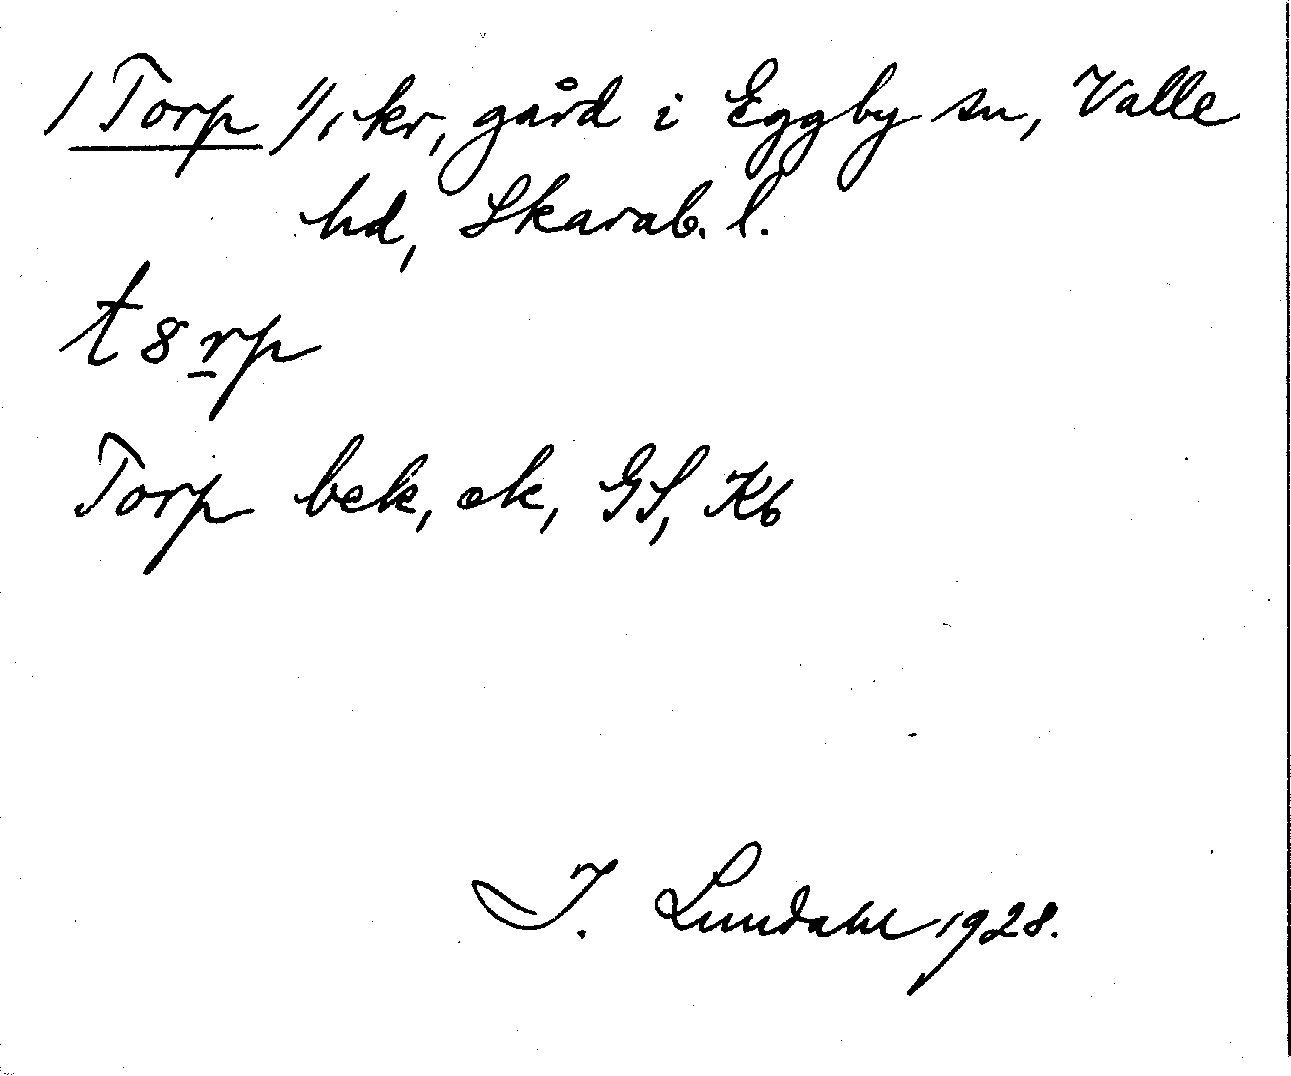 / Torp 1/1 kr, gård i Eggby sn, Valle
hd, Skarab. l.
t8rp
Torp bek, ek, GS, Kb
I. Lundahl 1928.